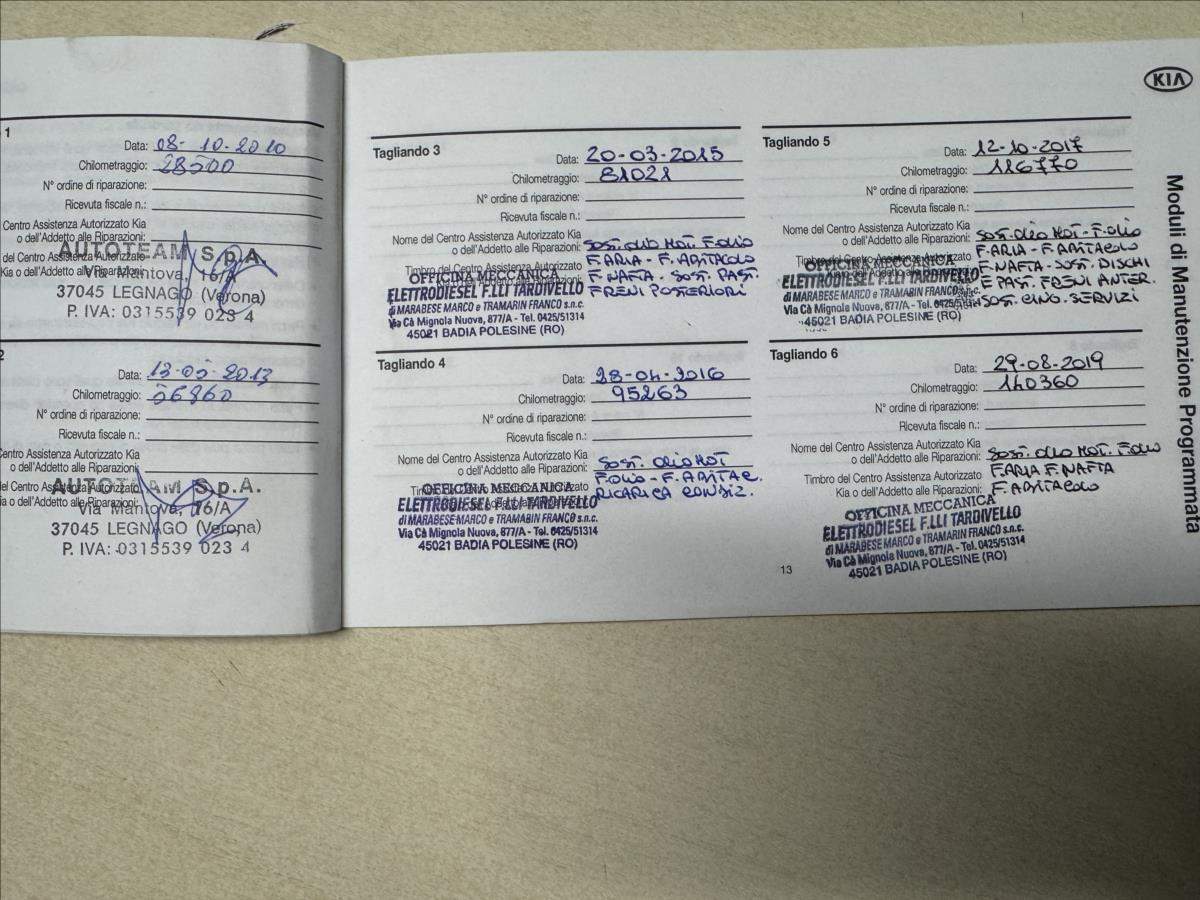 KIA
Moduli di Manutenzione Programmata
1
Data: 08-10-2010
Chilometraggio: 28500
N° ordine di riparazione:
Ricevuta fiscale n.:
Centro Assistenza Autorizzato Kia
o dell'Addetto alle Riparazioni:
del Centro Assistenza Autorizzato
Kia o dell'Addetto alle Riparazioni:
AUTOTEAM S.p.A.
Via Mantova, 16/A
37045 LEGNAGO (Verona)
P. IVA: 0315539 023 4
2
Data: 13-05-2013
Chilometraggio: 56860
N° ordine di riparazione:
Ricevuta fiscale n.:
Centro Assistenza Autorizzato Kia
o dell'Addetto alle Riparazioni:
del Centro Assistenza Autorizzato
Kia o dell'Addetto alle Riparazioni:
AUTOTEAM S.p.A.
Via Mantova, 16/A
37045 LEGNAGO (Verona)
P. IVA: 0315539 023 4
Tagliando 3
Data: 20-03-2015
Chilometraggio: 81021
N° ordine di riparazione:
Ricevuta fiscale n.:
Nome del Centro Assistenza Autorizzato Kia
o dell'Addetto alle Riparazioni: SOST. OLIO MOT. F. OLIO
F. ARIA - F. ABITACOLO
Timbro del Centro Assistenza Autorizzato
F. NAFTA - SOST. PAST.
FRENI POSTERIORI
OFFICINA MECCANICA
ELETTRODIESEL F.LLI TARDIVELLO
di MARABESE MARCO e TRAMARIN FRANCO s.n.c.
Via Cà Mignola Nuova, 877/A - Tel. 0425/51314
45021 BADIA POLESINE (RO)
Tagliando 4
Data: 28-04-2016
Chilometraggio: 95263
N° ordine di riparazione:
Ricevuta fiscale n.:
Nome del Centro Assistenza Autorizzato Kia
o dell'Addetto alle Riparazioni: SOST. OLIO MOT
F. OLIO - F. ABITAC.
RICARICA CONDIZ.
OFFICINA MECCANICA
ELETTRODIESEL F.LLI TARDIVELLO
di MARABESE MARCO e TRAMARIN FRANCO s.n.c.
Via Cà Mignola Nuova, 877/A - Tel. 0425/51314
45021 BADIA POLESINE (RO)
Tagliando 5
Data: 12-10-2017
Chilometraggio: 116770
N° ordine di riparazione:
Ricevuta fiscale n.:
Nome del Centro Assistenza Autorizzato Kia
o dell'Addetto alle Riparazioni: SOST. OLIO MOT - F. OLIO
F. ARIA - F. ABITACOLO
Timbro del Centro Assistenza Autorizzato
F. NAFTA - SOST. DISCHI
E PAST. FRENI ANTER.
SOST. CING. SERVIZI
OFFICINA MECCANICA
ELETTRODIESEL F.LLI TARDIVELLO
di MARABESE MARCO e TRAMARIN FRANCO s.n.c.
Via Cà Mignola Nuova, 877/A - Tel. 0425/51314
45021 BADIA POLESINE (RO)
Tagliando 6
Data: 29-08-2019
Chilometraggio: 140360
N° ordine di riparazione:
Ricevuta fiscale n.:
Nome del Centro Assistenza Autorizzato Kia
o dell'Addetto alle Riparazioni: SOST. OLIO MOT. F. OLIO
Timbro del Centro Assistenza Autorizzato F. ARIA F. NAFTA
Kia o dell'Addetto alle Riparazioni: F. ABITACOLO
OFFICINA MECCANICA
ELETTRODIESEL F.LLI TARDIVELLO
di MARABESE MARCO e TRAMARIN FRANCO s.n.c.
Via Cà Mignola Nuova, 877/A - Tel. 0425/51314
45021 BADIA POLESINE (RO)
13